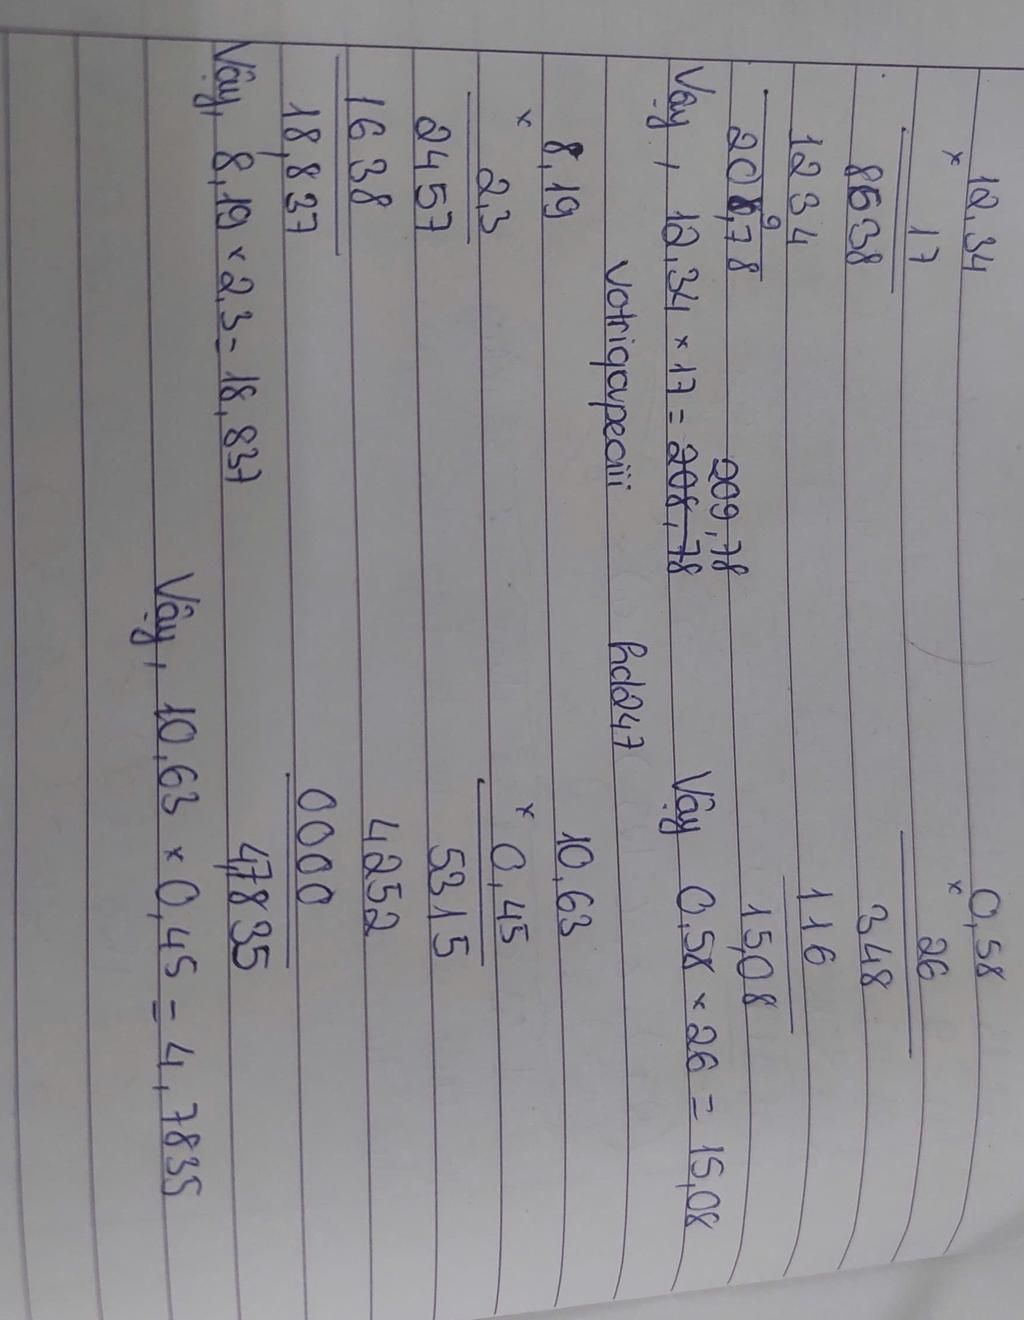 12,34
× 17
8638
1234
208,78
9
209,78
Vậy, 12,34 × 17 = 208,78
0,58
× 26
348
116
15,08
Vậy 0,58 × 26 = 15,08
votrigapeciii hd247
8,19
× 2,3
2457
1638
18,837
Vậy, 8,19 × 2,3 = 18,837
10,63
× 0,45
5315
4252
0000
4,7835
Vậy, 10,63 × 0,45 = 4,7835